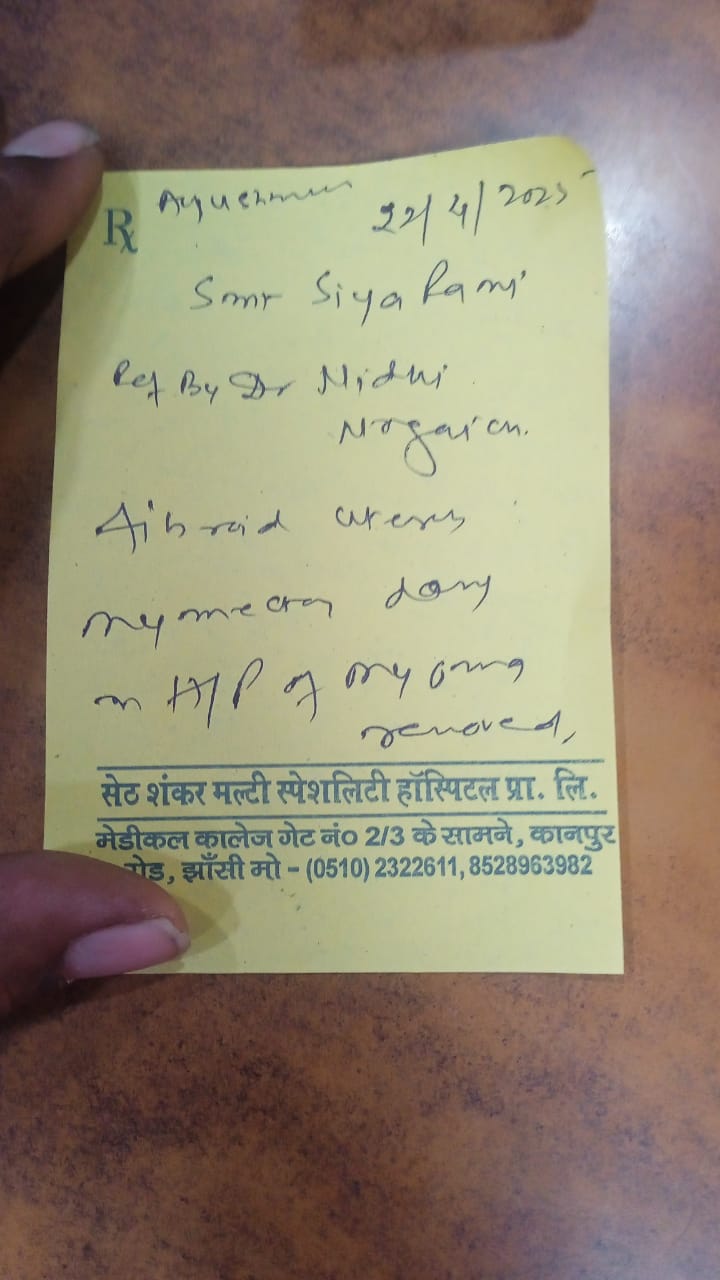 Rx Ayushman 22/4/2025
Smt Siya Rani
Ref By Dr Nidhi
Nogaich.
Fibroid uterus
mymectomy done
H/P of myoma
removed,
सेठ शंकर मल्टी स्पेशलिटी हॉस्पिटल प्रा. लि.
मेडीकल कालेज गेट नं० 2/3 के सामने, कानपुर
रोड, झाँसी मो - (0510) 2322611, 8528963982